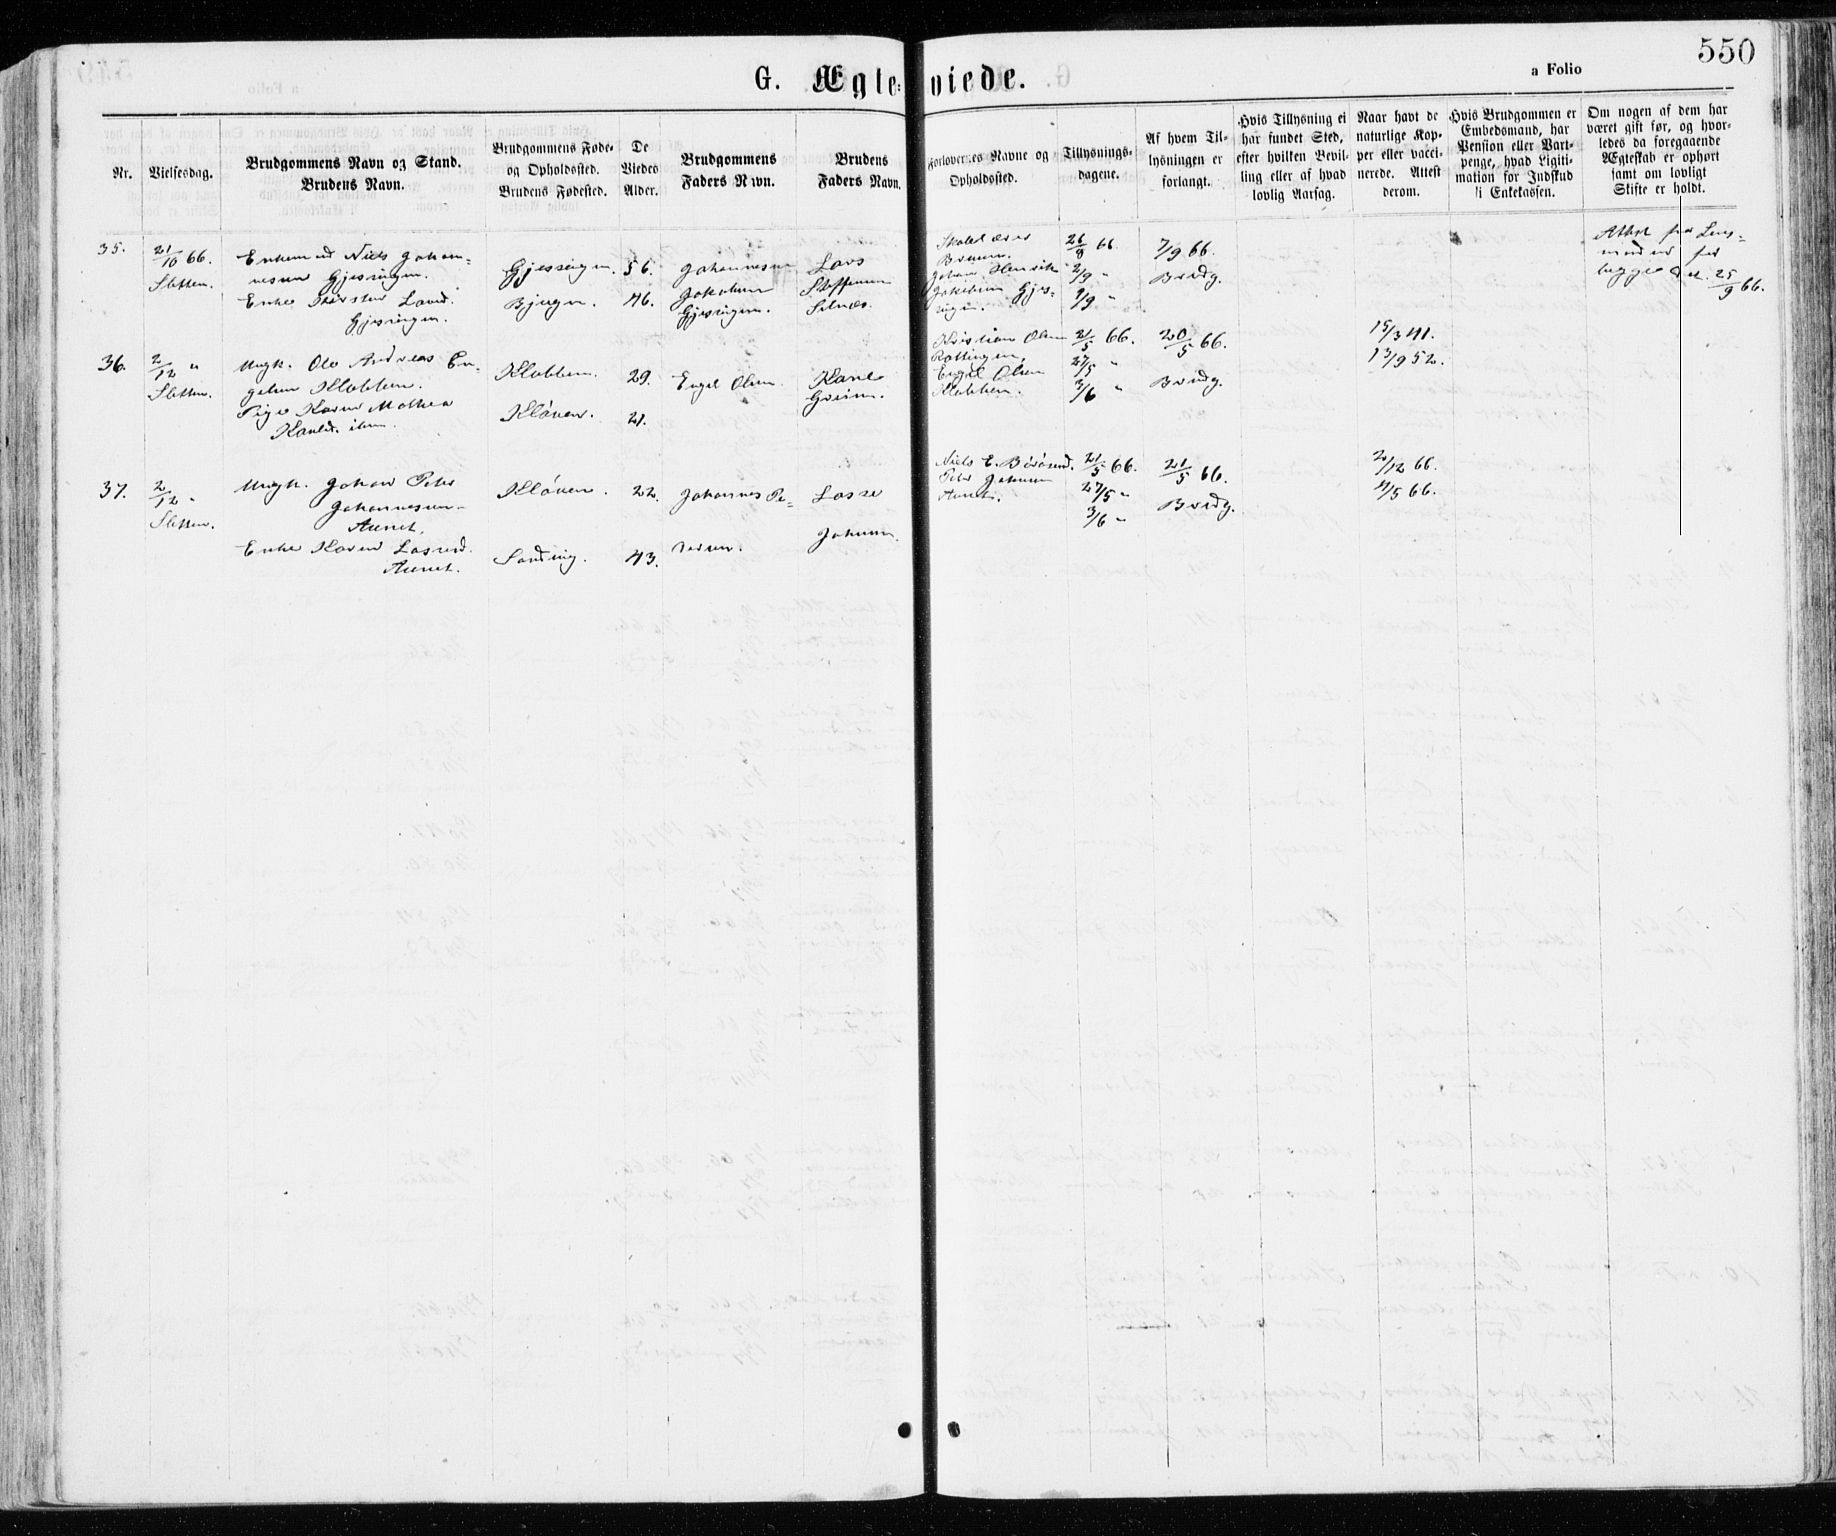 550
a Folio
G. Ægte-
viede.
Nr.
Vielsesdag.
Brudgommens Navn og Stand.
Brudens Navn.
Brudgommens Føde-
og Opholdssted.
Brudens Fødested.
De
Viedes
Alder.
Brudgommens
Faders Navn.
Brudens
Faders Navn.
Forlovernes Navne og
Opholdssted.
Tillysnings-
dagene.
Af hvem Til-
lysningen er
forlangt.
Hvis Tillysning ei
har fundet Sted,
efter hvilken Bevil-
ling eller af hvad
lovlig Aarsag.
Naar havt de
naturlige Kop-
per eller vacci-
nerede. Attest
derom.
Hvis Brudgommen er
Embedsmand, har
Pension eller Vart-
penge, hvad Ligiti-
mation for Indskud
i Enkekassen.
Om nogen af dem har
været gift før, og hvor-
ledes da foregaaende
Ægteskab er ophørt
samt om lovligt
Skifte er holdt.
35.
21/10 66.
Sletten.
Enkemand Niels Johan-
nesen Gjessingen.
Enke Kirsten Larsd.
Gjessingen.
Gjessingen.
Bjugn.
56.
46.
Johannes
Jakobsen
Gjessingen.
Lars
Steffensen
Selnæs.
Skolelærer
Johan Henrik
Jakobsen Gjes-
singen.
26/8 66.
2/9 "
9/9 "
7/9 66.
Brudg.
Attest fra Lens-
mand for
begge Dat. 25/9 66.
36.
2/12 "
Sletten.
Ungk. Ole Andreas En-
gelsen Klakken.
Pige Karen Mathea
Karlsd. ibm.
Klakken.
Kløven.
29.
21.
Engel Olsen.
Karl
Kristian Olsen
Engel Olsen
Klakken.
21/5 66.
27/5 "
3/6 "
20/5 66.
Brudg.
15/3 41.
13/9 52.
37.
2/12 "
Sletten.
Ungk. Johan Peter
Johannessen
Aunet.
Enke Karen Lassesd.
Aunet.
Kløven.
22.
43.
Johannes Pe-
dersen.
Lasse
Johnsen.
Niels E.
Peter Johnsen
Aunet.
21/5 66.
27/5 "
3/6 "
21/5 66.
Brudg.
2/12 66.